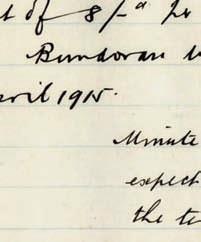 t of 8/- a
Bundoran
ril 1915.
Minute
expect
the te